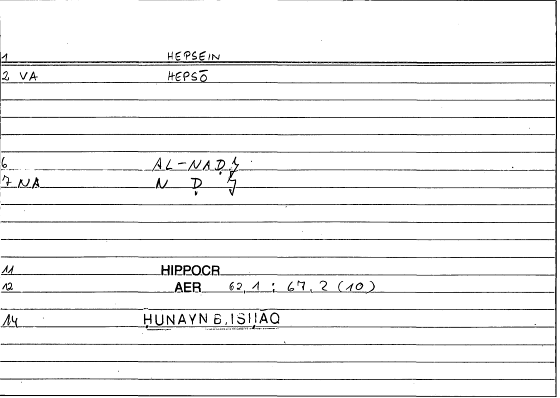 1 HEPSEIN
2 VA HEPSŌ
6 AL-NAḌJ
7 NA N Ḍ J
11 HIPPOCR
12 AER 62,1 : 67,2 (10)
14 ḤUNAYN B. ISḤĀQ